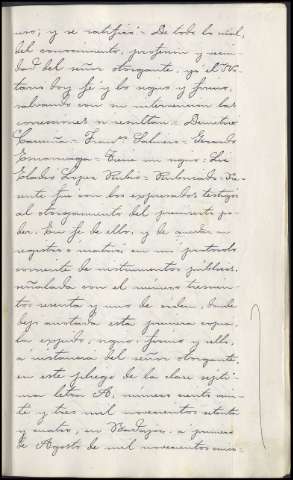 uso, y se ratifica = De todo lo cual,
del conocimiento, profesión y vecin-
dad del señor otorgante, yo el No-
tario doy fé y lo signo y firmo,
salvando con mi intervencion las
correcciones si resultan = Demetrio
= Franco
= Gerardo
= Tiene un signo: Lic.
Eladio Lopez Rubio = Rubricado = Pre-
sente fui con los expresados testigos
al otorgamiento del presente po-
der. En fe de ello, y de quedar su
registro ó matriz en mi protocolo
corriente de instrumentos públicos,
señalada con el número trescien-
tos sesenta y uno de orden, donde
dejo anotada esta primera copia,
la expido, signo, firmo y sello,
á instancia del señor otorgante,
en este pliego de la clase septi-
ma letra A, numero ciento vein-
te y tres mil novecientos setenta
y cuatro, en Badajoz, á primero
de Agosto de mil novecientos cinco =